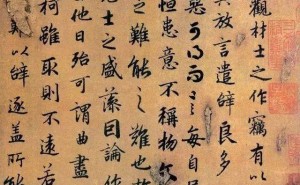 觀材士之作竊有以
其放言遣辭良多
惡可得而言每自屬
恒患意不稱物文
之難能之難也
士之盛藻因論作
他日殆可謂曲盡
柯雖取則不遠若
難以辭逐蓋所能